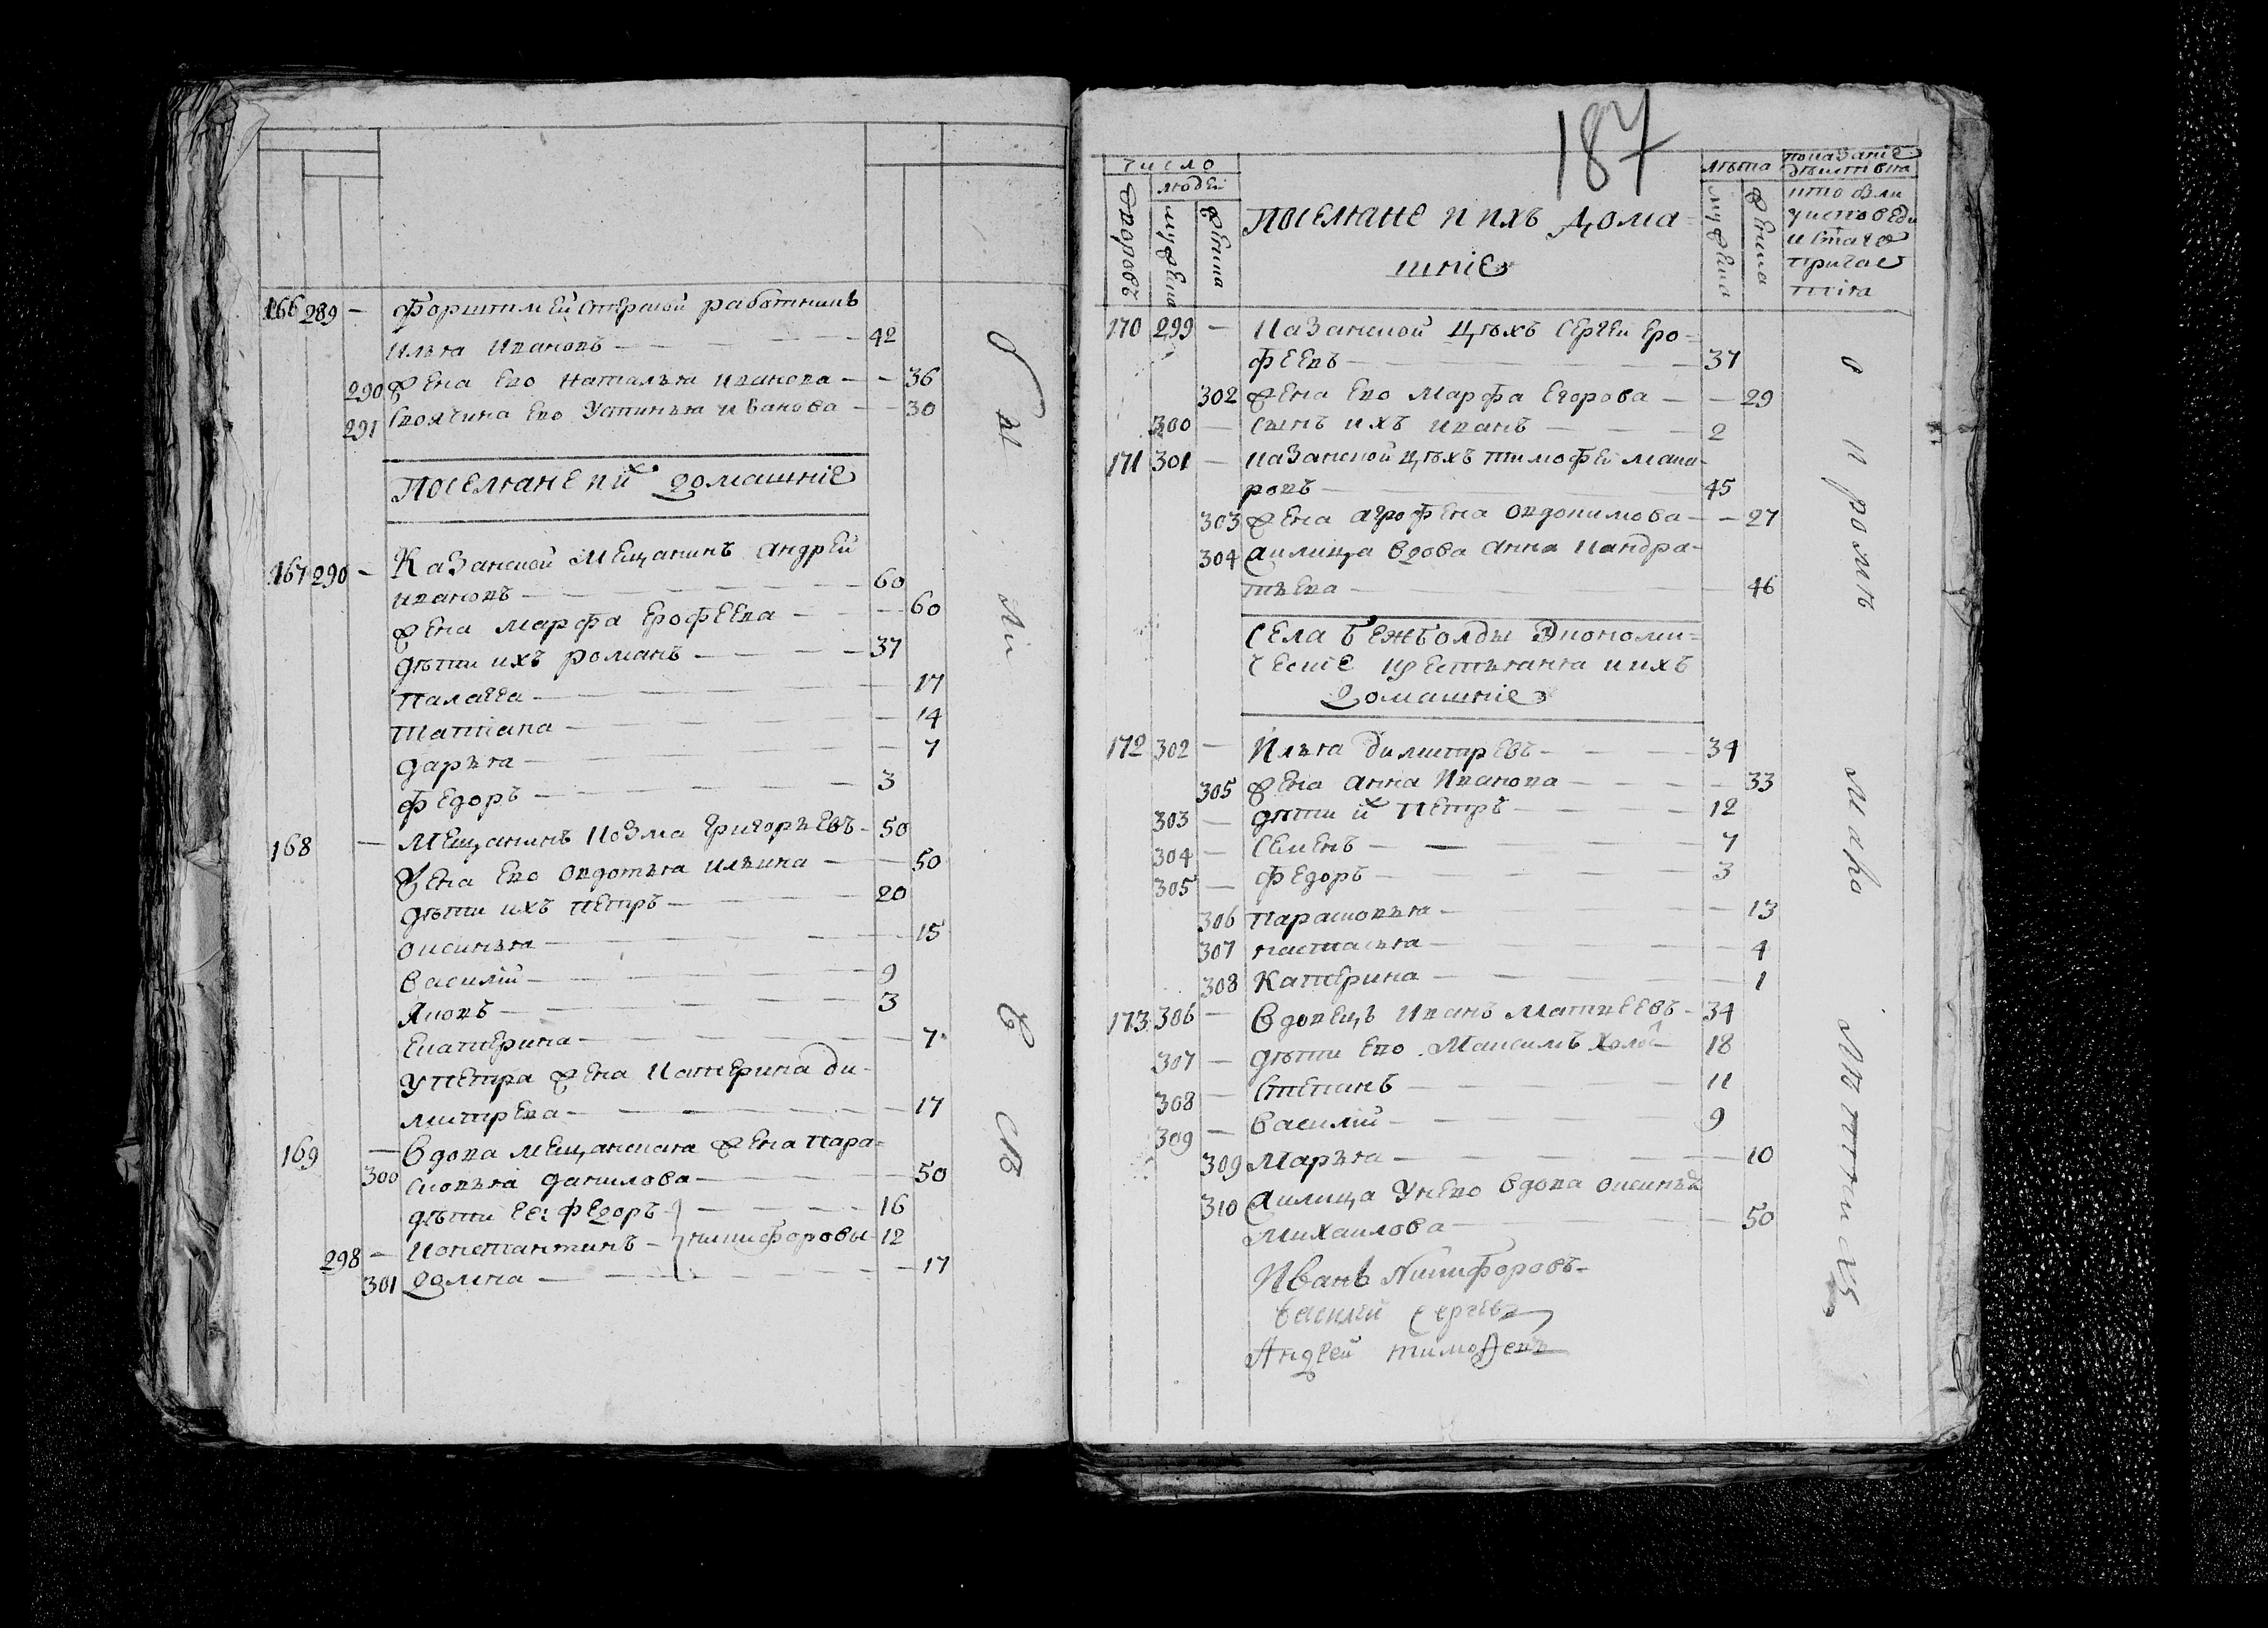 166 289 – форштмейстерской работникъ
Илья Ивановъ 42
290 жена ево Наталья Иванова 36
291 своячина ево Устинья Иванова 30
Поселяне и их домашніе
167 290 – Казанской мещанинъ Андрей
Ивановъ 60
жена Марфа Ерофеева 60
дѣти ихъ Романъ 37
Палагея 17
Татіана 14
Дарья 7
Федоръ 3
168 – Мещанинъ Козма Григорьевъ 50
жена ево Овдотья Ильина 50
дѣти ихъ Петръ 20
Оксинья 15
Василій 9
Яковъ 3
Екатерина 7
У Петра жена Катерина Ди-
митрева 17
169 – Вдова мещанская жена Пара-
300 сковья Данилова 50
дѣти ее: Федоръ 16
298 – Константинъ – никифоровы 12
301 Домна 17
187
число
людей
дворовъ
мужеска
женска
Поселяне и ихъ дома-
шніе
лѣта
мужеска
женска
показаніе
кто был
у исповеди
и с̃таго
причас
тія
170 299 – Казанской цѣхъ Сергеи Еро-
феевъ 37
302 жена ево Марфа Егорова 29
300 – сынъ ихъ Иванъ 2
171 301 – Казанской цѣхъ Тимофей Мака-
ровъ 45
303 жена Агрофена Овдокимова 27
304 вдова Анна Кандра-
тьева 46
Села Бежболды Экономи-
ческіе крестьяня и ихъ
домашніе
172 302 – Илья Димитревъ 34
305 жена Анна Иванова 33
303 – дѣти их Петръ 12
304 – Семенъ 7
305 – Федоръ 3
306 Парасковья 13
307 Настасья 4
308 Катерина 1
173 306 – Вдовецъ Иванъ Матвеевъ 34
307 – дѣти ево Максимъ Холос 18
308 – Степанъ 11
309 – Василій 9
309 Марья 10
310 у нево вдова Оксинья
Михаилова 50
Иванъ Никифоровъ
Василей Сергѣевъ
Андрей Тимофеевъ